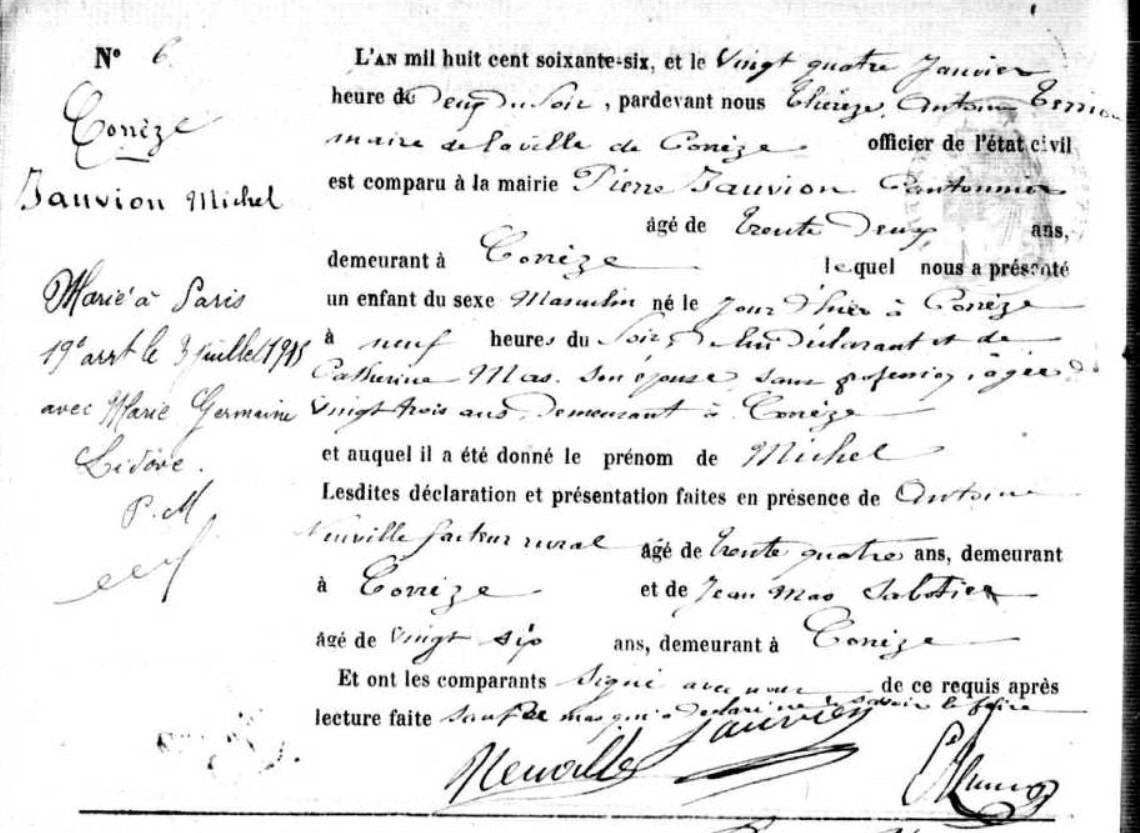 N° 6
Corrèze
Jauvion Michel
Marié à Paris
19e arrt le 3 juillet 1915
avec Marie Germaine
Lidove.
P. M
L'AN mil huit cent soixante-six, et le Vingt quatre Janvier
heure de Deux Du Soir, pardevant nous Antoine
maire de la ville de Corrèze officier de l'état civil
est comparu à la mairie Pierre Jauvion Cantonnier
âgé de trente Deux ans,
demeurant à Corrèze lequel nous a présenté
un enfant du sexe Masculin né le Jour D'hier à Corrèze
à neuf heures du Soir, De lui Déclarant et de
Catherine Mas. Son épouse, Sans profession, âgée De
Vingt trois ans, Demeurant à Corrèze
et auquel il a été donné le prénom de Michel
Lesdites déclaration et présentation faites en présence de Antoine
Neuville facteur rural âgé de trente quatre ans, demeurant
à Corrèze et de Jean Mas Sabotier
âgé de Vingt Six ans, demeurant à Corrèze
Et ont les comparants Signé avec nous de ce requis après
lecture faite Sauf le mas qui a Déclaré ne Savoir le faire
Neuville Jauvion